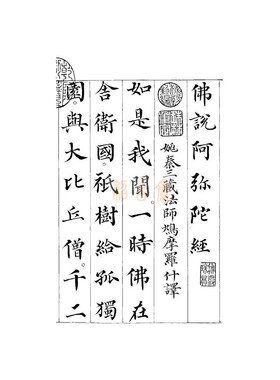 佛說阿弥陀經
姚秦三藏法師鳩摩羅什譯
如是我聞。一時佛在
舍衛國。祇樹給孤獨
園。與大比丘僧。千二